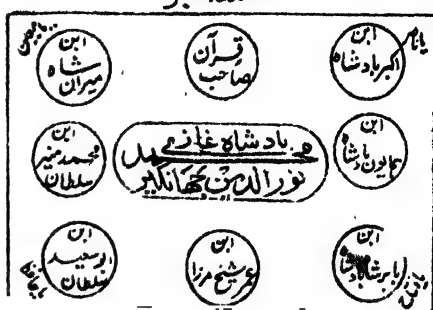 یا ناصر
ابن
اکبر بادشاہ
قرآن
صاحب
ابن
شاہ
میران
ابن
ہمایون بادشاہ
محمد
بادشاہ غازی
نور الدین جہانگیر
ابن
محمد منیر
سلطان
ابن
بابر شاہ بادشاہ
ابن
عمر شیخ مرزا
ابن
ابو سعید
سلطان